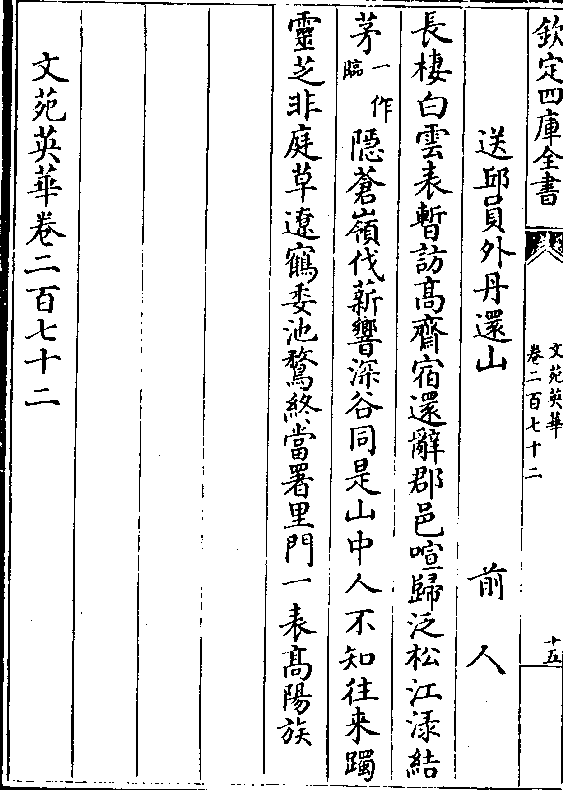 欽定四庫全書
文苑英華
卷二百七十二
十五
送邱員外丹還山
前人
長棲白雲表暫訪髙齋宿還辭郡邑喧歸泛松江渌結
茅一作臨隠蒼嶺伐薪響深谷同是山中人不知往來躅
靈芝非庭草遼鶴委池鶩終當署里門一表髙陽族
文苑英華卷二百七十二